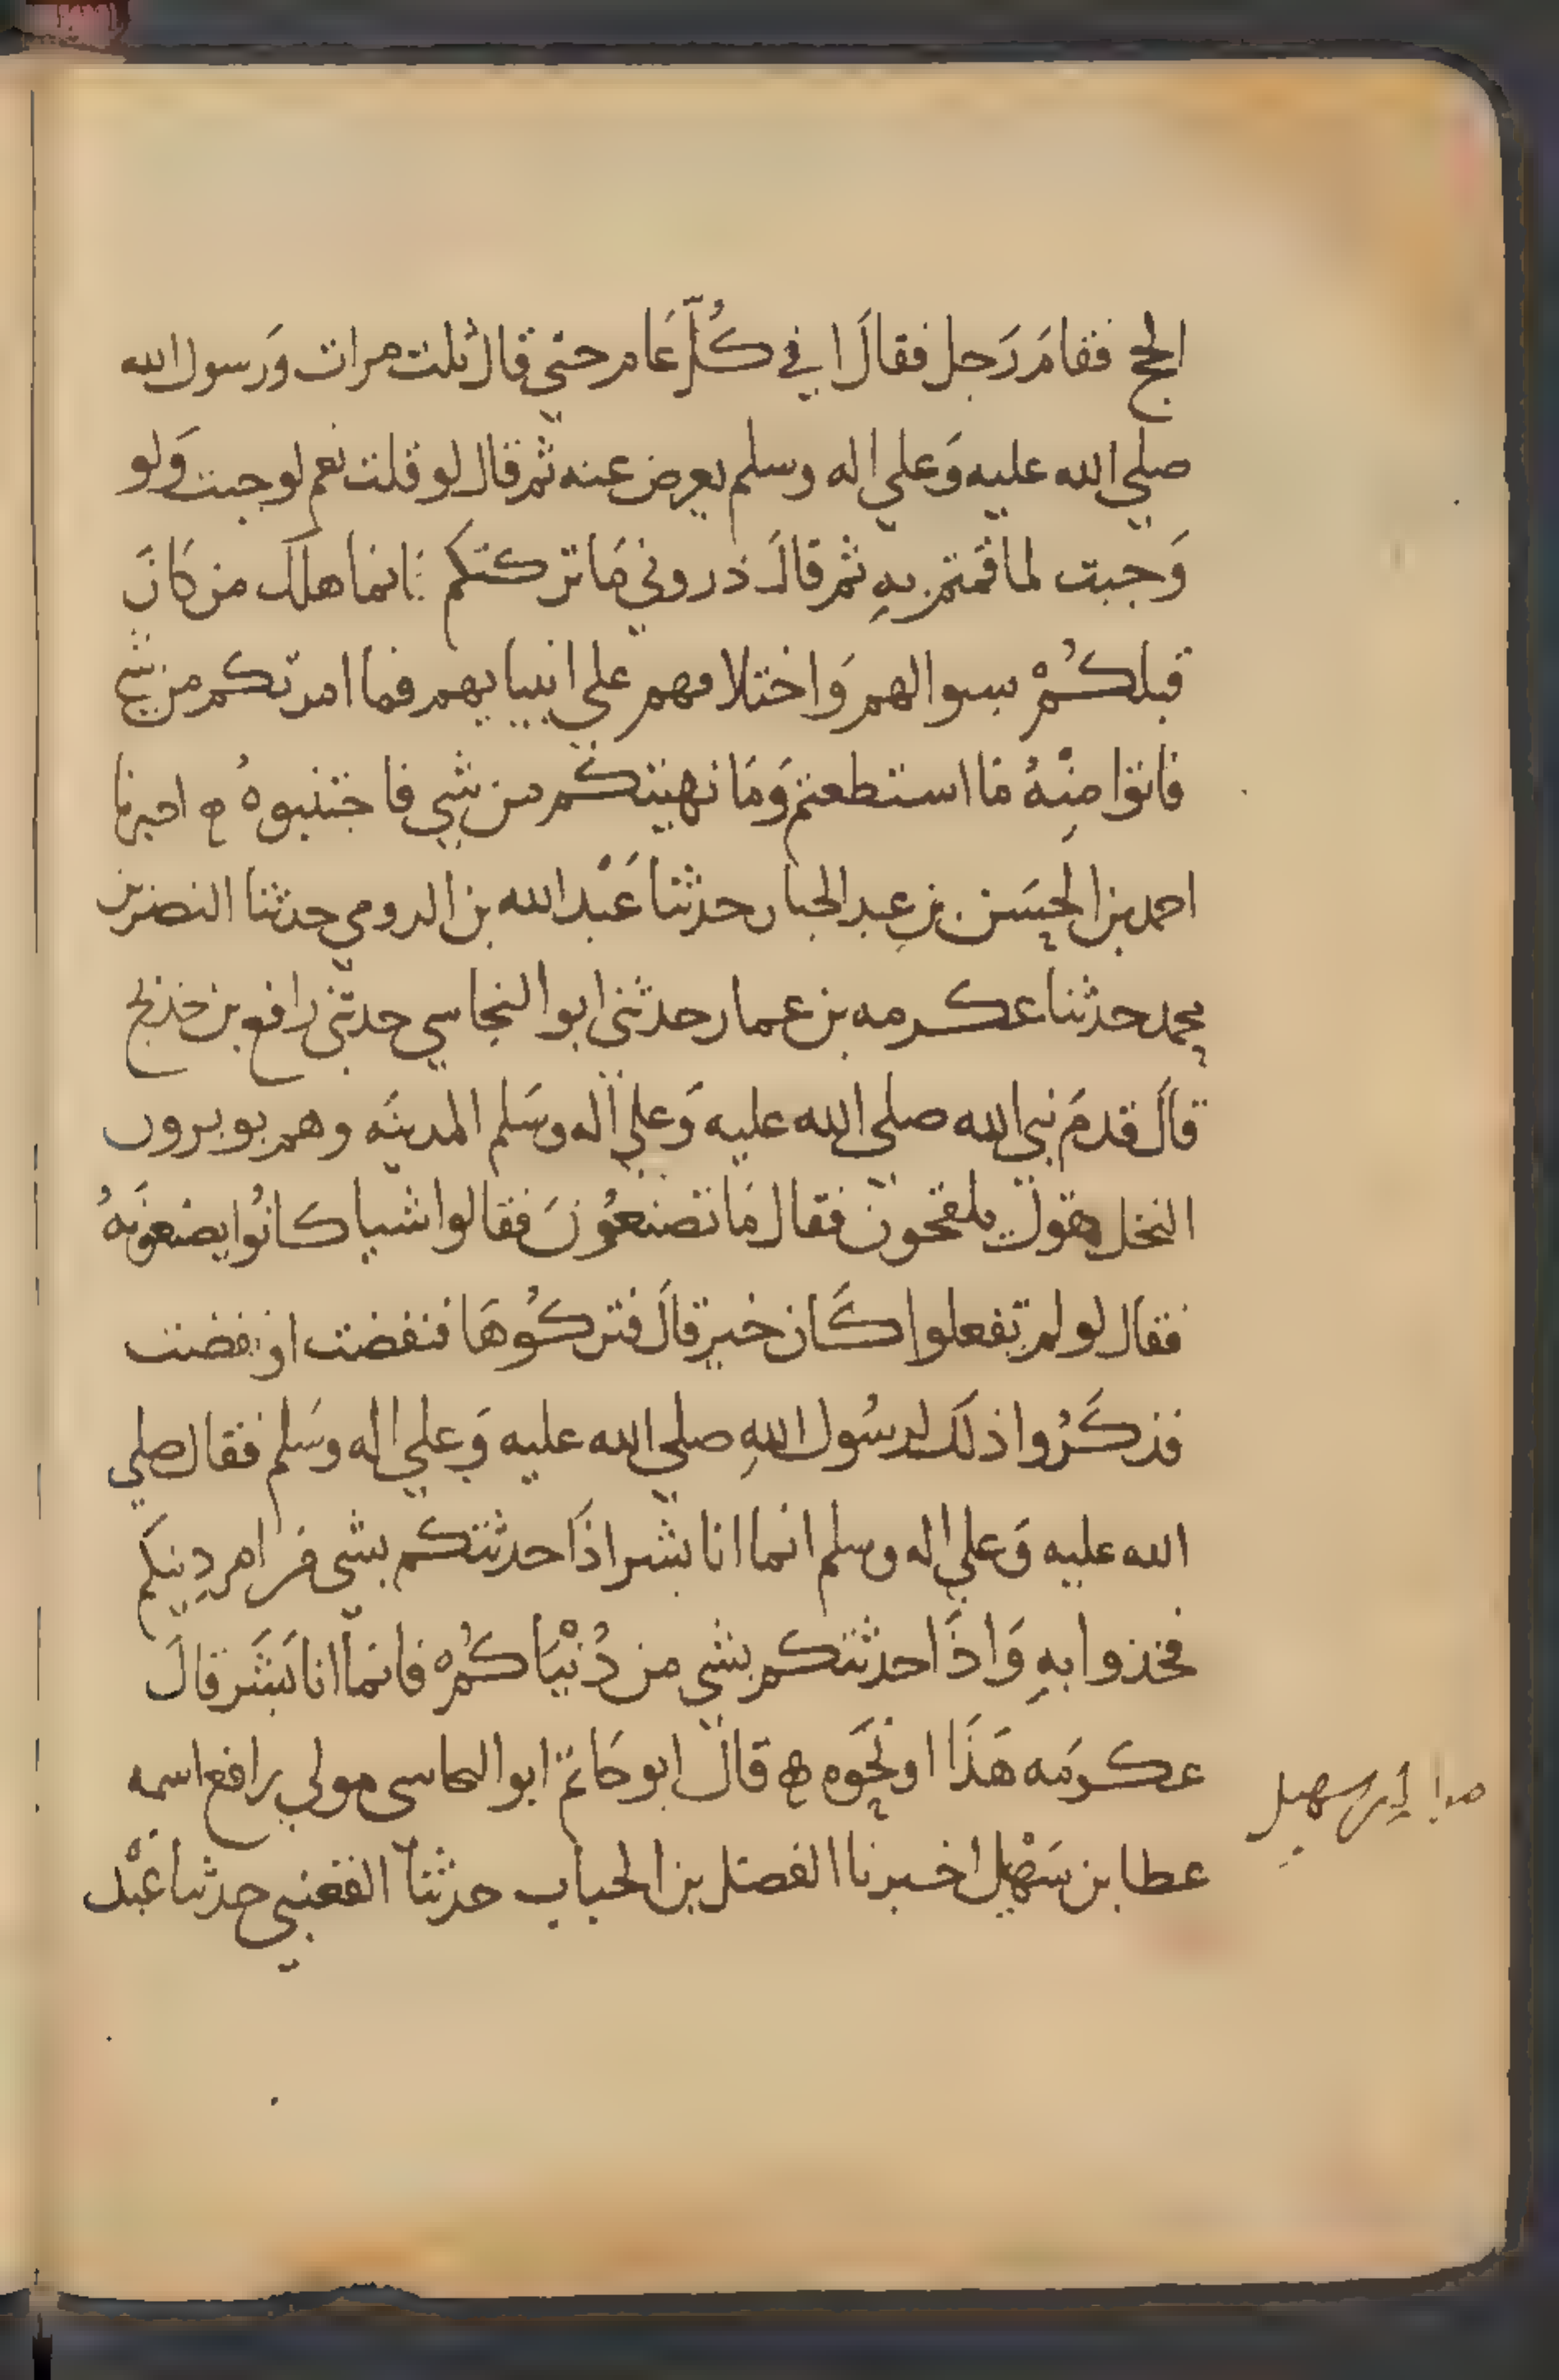 الحج فقامَ رَجل فقالَ افي كُلّ عَام حتي قال ثلث مرات وَرسول الله
صلي الله عليه وَعلي اله وسلم يعرض عنه ثم قال لو قلت نعم لوجبت وَلو
وَجبت لما قمتم بهِ ثم قالَ ذروني مَا تركتكم فانما هلك من كانَ
قبلكُمْ بسوالهم وَاختلافهم علي انبيايهم فما امرتكم من شي
فاتوا مِنْهُ مَا استطعتم وَمَا نهيتكم من شي فاجتنبوهُ ه اخبرنا
احمد بن الحسَن بن عبد الجبار حدثنا عَبْد الله بن الرومي حدثنا النضر بن
محمد حدثنا عكرمه بن عمار حدثني ابو النجاسي حدثني رافع بن خديج
قالَ قدمَ نبي الله صلي الله عليه وَعلي اله وسَلم المدينَه وهم يوبرون
النخل يقول يلقحون فقال مَا تصْنعُونَ فقالوا شيا كانُوا يصْنعونَهُ
فقال لو لم تفعلوا كَان خير قالَ فتركُوهَا فنفضت او نفضت
فذكَرُوا ذلَك لرسُول اللهِ صلي الله عليه وَعلي اله وسَلم فقال صلي
الله عليه وَعلي اله وسلم انما انا بشر اذَا حدثتكم بشي من امر دِينكم
فخذوا بهِ وَاذَا حدثتكم بشي من دُنْيَاكُمْ فانما انا بَشَر قالَ
عكرمَه هَذَا او نحَوه ه قالَ ابو حَاتم ابو النجاسي مولي رافع اسمه
عطا بن سَهْل اخبرنا الفضل بن الحباب حدثنا القعنبي حدثنا عَبْد
سهيل